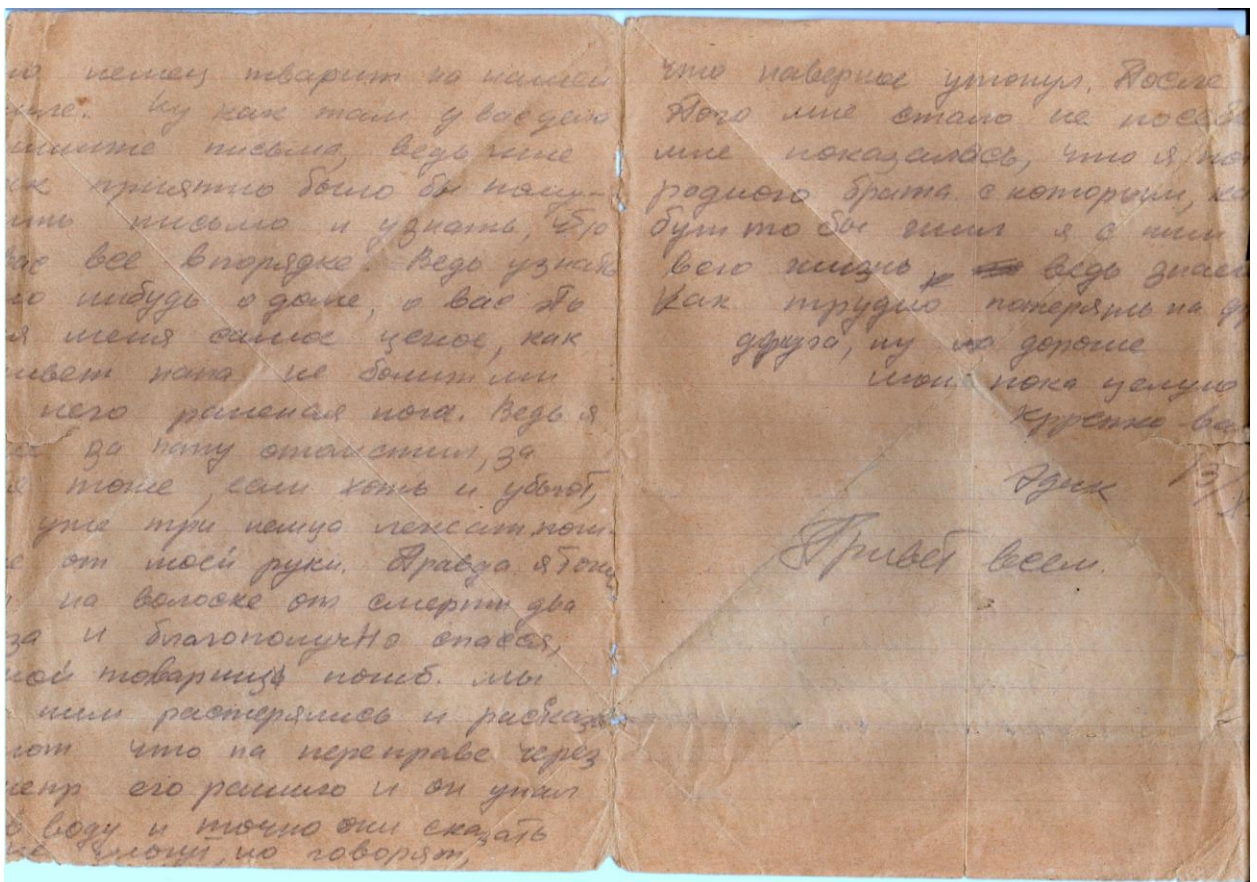 немец тварит на нашей
Ну как там у вас дела
письма, ведь мне
приятно было бы полу-
письмо и узнать, что
вас все впорядке. Ведь узнать
нибудь о доме, о вас то
меня самое ценое, как
папа не болит ли
него раненая нога. Ведь я
за папу отомстил, за
тоже, если хоть и убьют,
уже три немца лежат
от моей руки. Правда я тоже
на волоске от смерти два
и благополучно спасся,
мой товарищ погиб. мы
ним растерялись и расказы
что на переправе через
его ранило и он упал
в воду и точно они сказать
не могут, но говорят,
что наверное утонул. После
того мне стало не по себе
мне показалась, что я
родного брата с которым,
бутто бы жил я с ним
всю жизнь, ведь
как трудно потерять на
друга, ну дорогие
мои пока целую
крепко вас
Эдик 13/X
Привет всем.